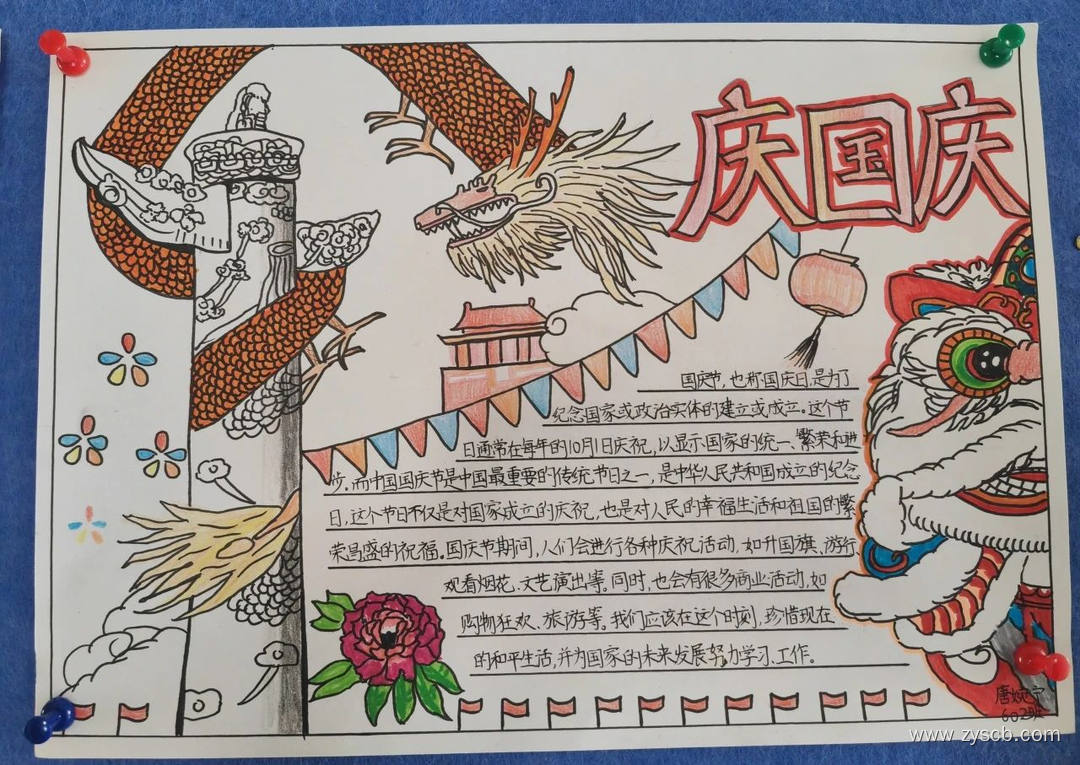 庆国庆
国庆节，也称国庆日，是为了
纪念国家或政治实体的建立或成立。这个节
日通常在每年的10月1日庆祝，以显示国家的统一、繁荣和进
步。而中国国庆节是中国最重要的传统节日之一，是中华人民共和国成立的纪念
日，这个节日不仅是对国家成立的庆祝，也是对人民的幸福生活和祖国的繁
荣昌盛的祝福。国庆节期间，人们会进行各种庆祝活动，如升国旗、游行
观看烟花、文艺演出等。同时，也会有很多商业活动，如
购物狂欢、旅游等。我们应该在这个时刻，珍惜现在
的和平生活，并为国家的未来发展努力学习、工作。
唐婉宁
602班
www.zyscb.com